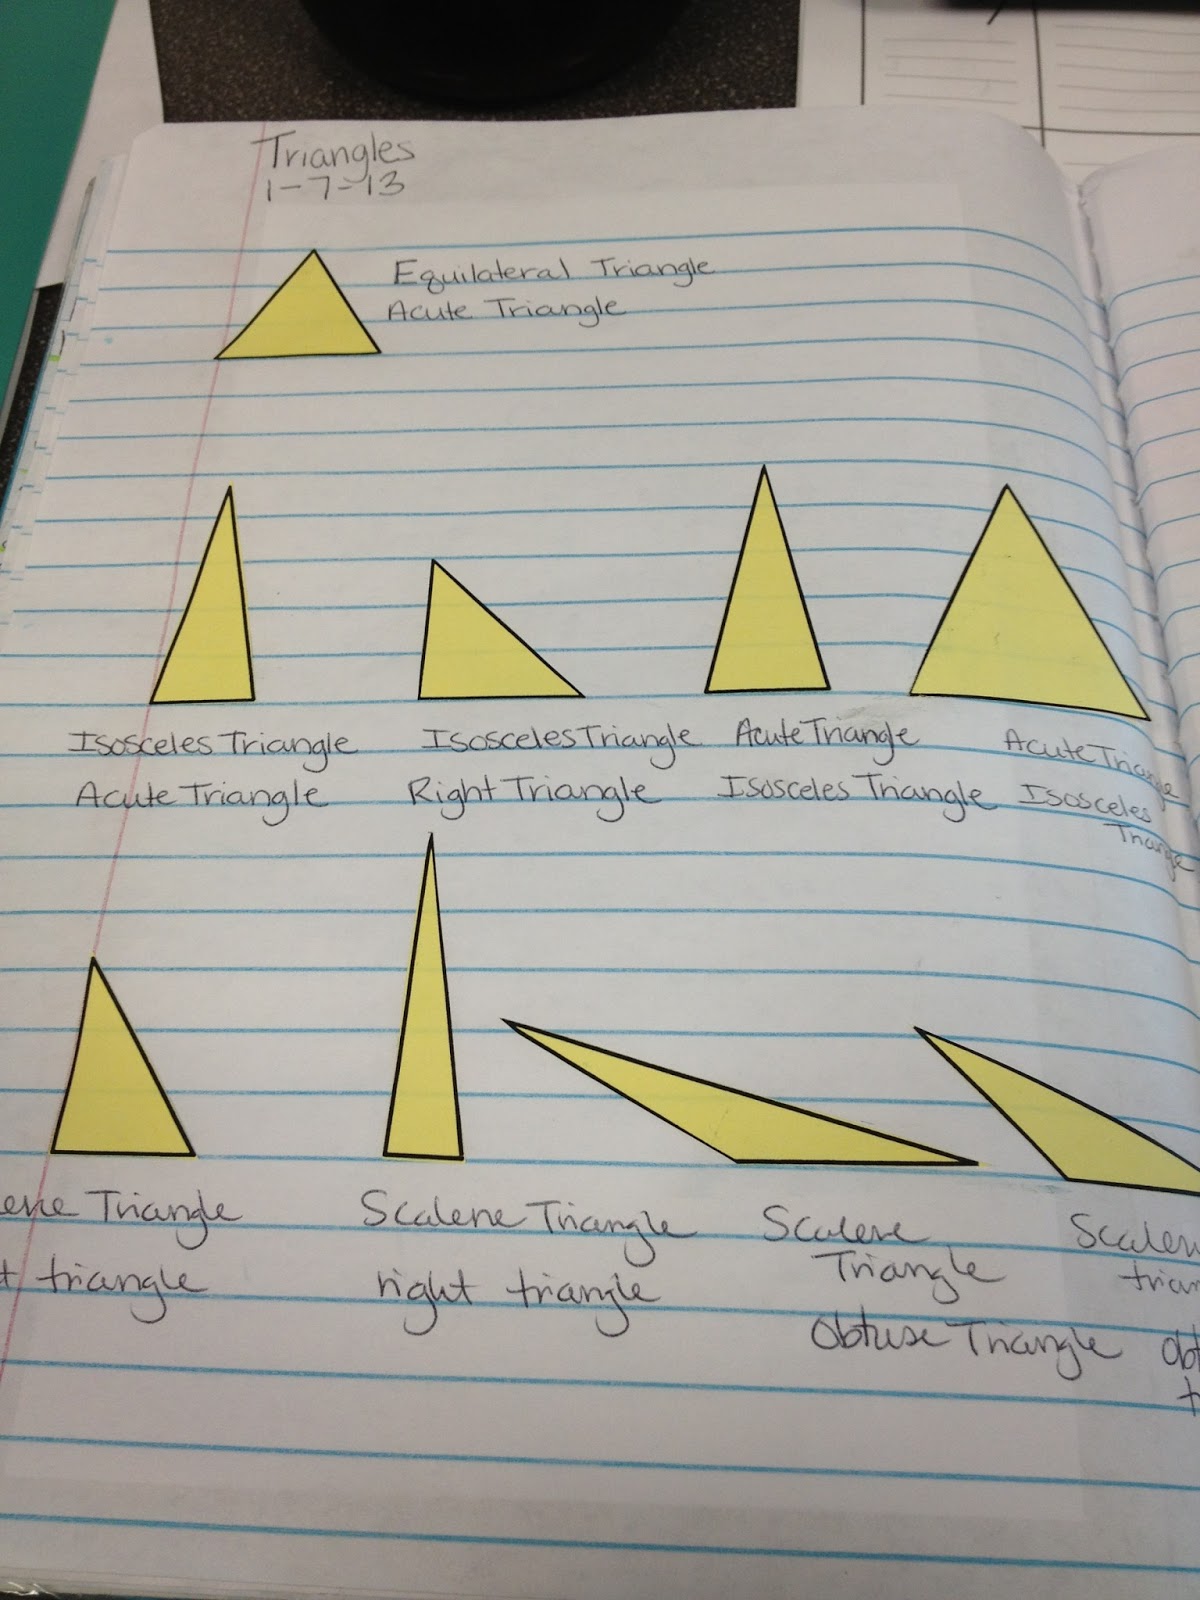 Triangles
1-7-13
Equilateral Triangle
Acute Triangle
Isosceles Triangle
Acute Triangle
Isosceles Triangle
Right Triangle
Acute Triangle
Isosceles Triangle
Acute Triangle
Isosceles
Triangle
ene Triangle
t triangle
Scalene Triangle
right triangle
Scalene
Triangle
Obtuse Triangle
Scalen
trian
Obt
t